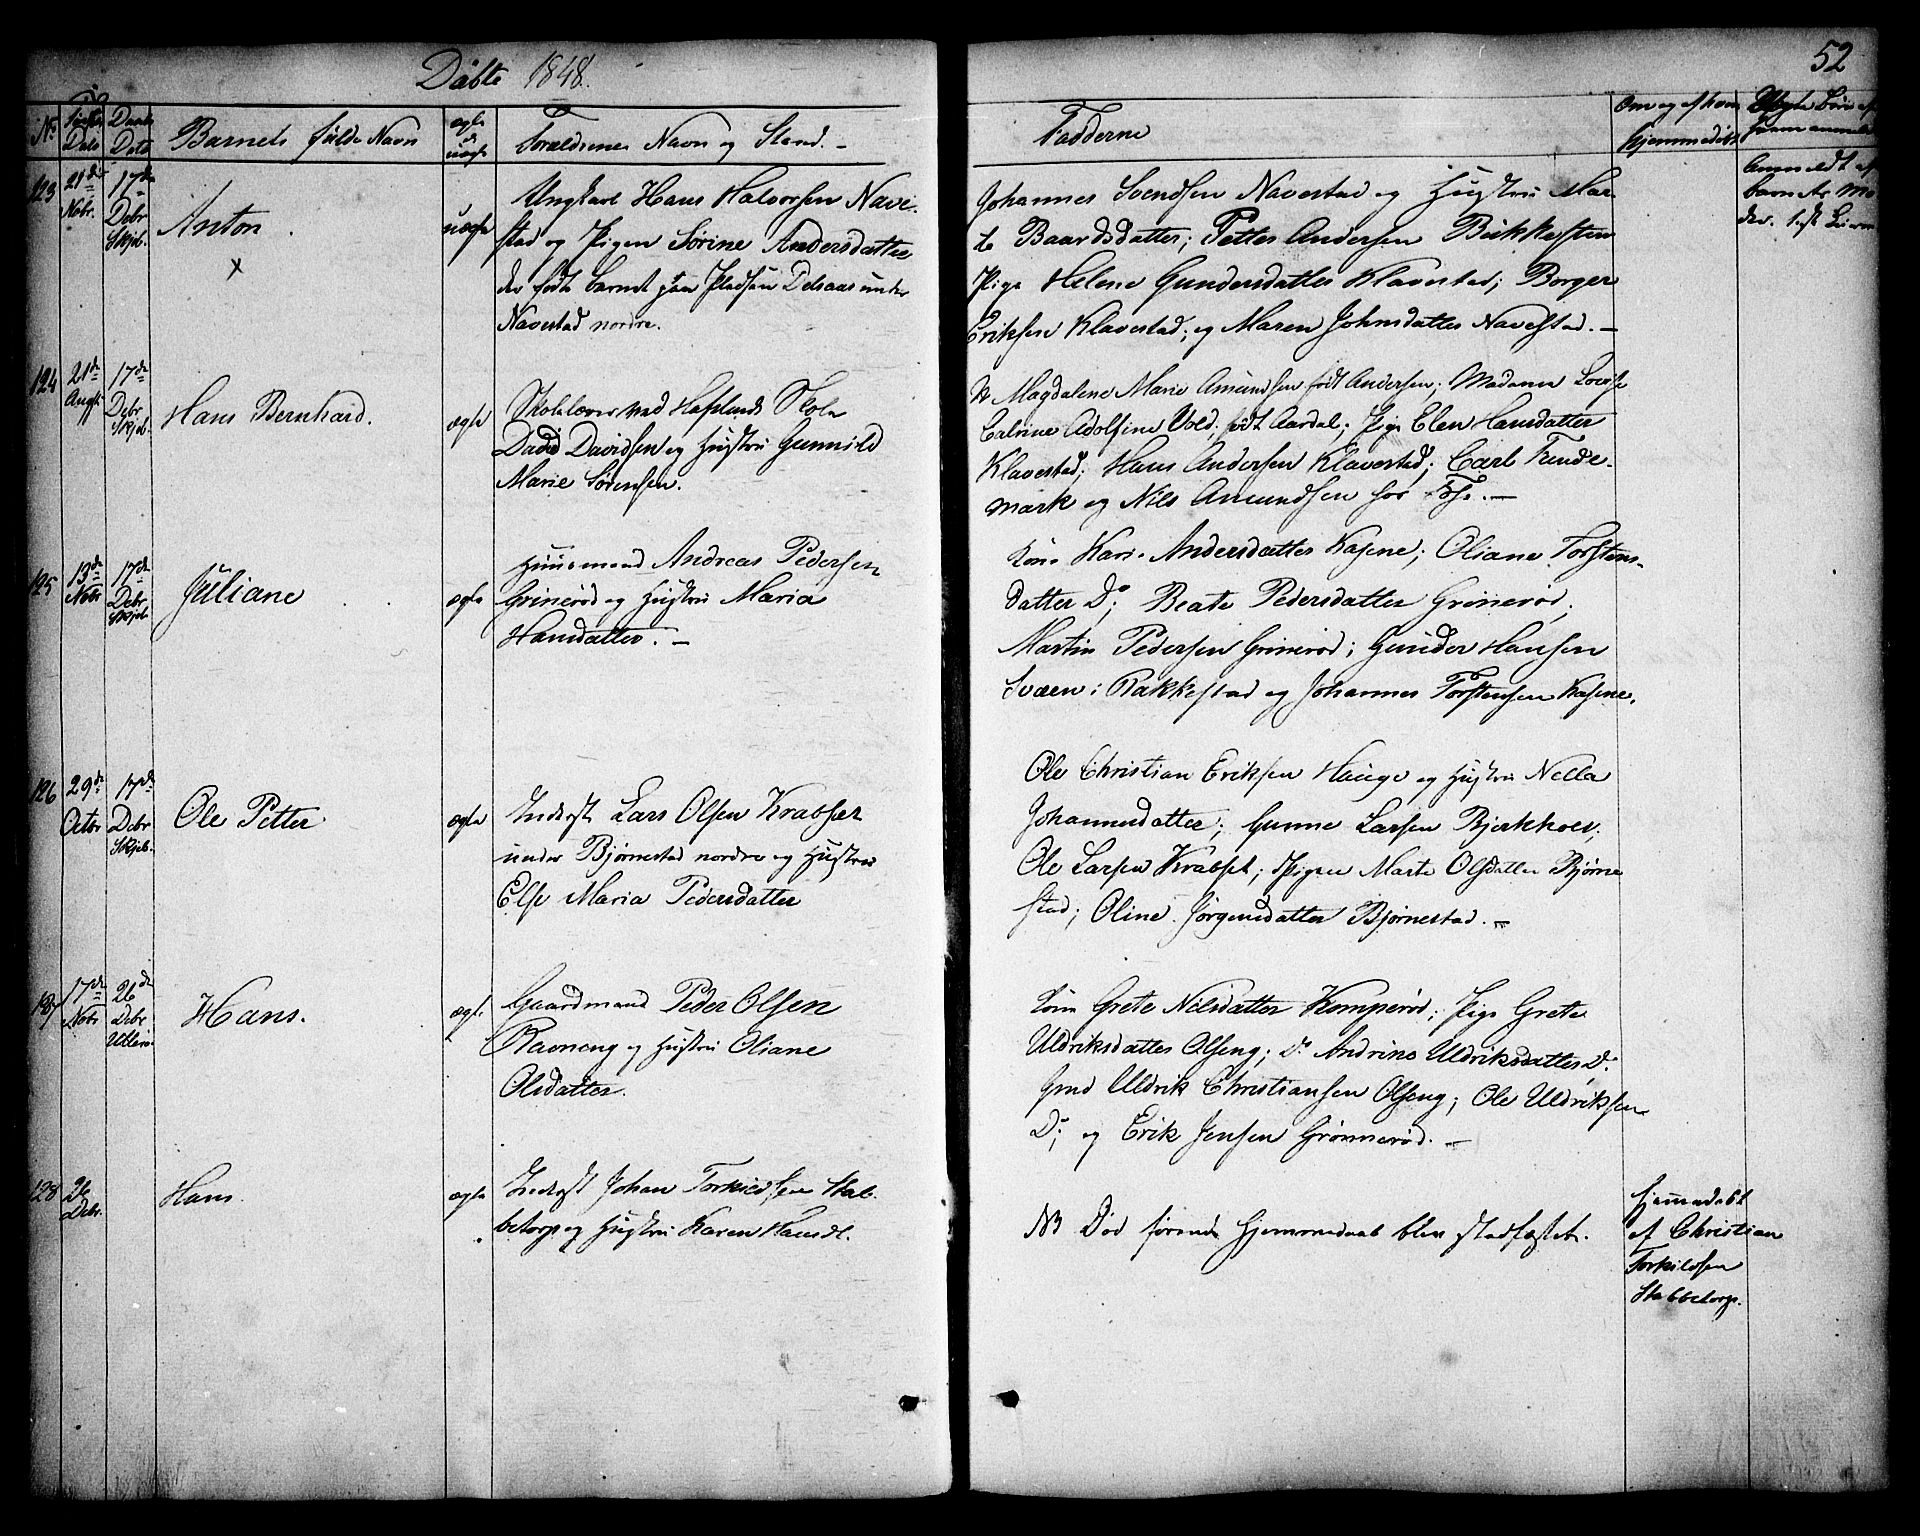 Døbte 1848.
52
No
Fødsels Dato
Daabs Dato
Barnets fulde Navn
ægte uægte
Forældrenes Navn og Stand. –
Fadderne
Om og af hvem
hjemmedøbt
123
21de Nobr.
17de Debr Skjeb.
Anton.
x
uægte
Ungkarl Hans Halvorsen Nave-
stad og Pigen Sørine Andersdatter
der fødte barnet paa Pladsen Delsaas under
Navestad nordre.
Johannes Svendsen Navestad og Hustru Mar-
te Baardsdatter; Petter Andersen Bukkesten
Pige Helene Gundersdatter Klavestad; Borger
Eriksen Klavestad; og Maren Johnsdatter Navestad. –
Anmeldt af
barnets Mo
der. 1ste Leierm
124
21de Augst.
17de Debr Skjeb.
Hans Bernhard.
ægte
Skolelærer ved Hafslunds Skole
David Davidsen og Hustru Gunnild
Marie Sørensen.
Magdalene Marie Amundsen født Andersen; Madame Lovise
Catrine Adolfine Vold, født Aardal; Pige Elen Hansdatter
Klavestad; Hans Andersen Klavestad; Carl Funde-
mark og Nils Amundsen for Fos. –
125
13de Nobr
17de Debr Skjeb.
Juliane
ægte
Huusmand Andreas Pedersen
Grinerød og Hustru Maria
Hansdatter. –
Kone Kari Andersdatter Kasene; Oliane Torstens-
datter Do; Beate Pedersdatter Grinerød;
Martin Pedersen Grinerød; Gunder Hansen
Svæen i Rakkestad og Johannes Torstensen Kasene.
126
29de Octbr
17de Debr Skjeb.
Ole Petter
ægte
Inderst Lars Olsen Krabset
under Bjørnestad nordre og Hustru
Else Maria Pedersdatter
Ole Christian Eriksen Hauge og Hustru Nella
Johannesdatter; Gunne Larsen Bjerkhoel;
Ole Larsen Krabset; Pigen Marte Olsdatter Bjørne
stad; Oline Jørgensdatter Bjørnestad. –
127
17de Nobr
26de Debr Ullerø
Hans.
ægte
Gaardmand Peder Olsen
Ravneng og Hustru Oliane
Olsdatter.
Kone Grete Nilsdatter Komperød; Pige Grete
Uldriksdatter Olseng; Do Andrine Uldriksdatter Do
Gmd Uldrik Christiansen Olseng; Ole Uldriksen
Do; og Erik Jensen Grønnerød. –
128
26 Debr.
Hans.
ægte
Inderst Johan Torkildsen Stab-
betorp og Hustru Karen Hansdt.
NB Død førend Hjemmedaab blev stadfæstet.
hjemmedøbt
af Christian
Torkildsen
Stabbetorp.